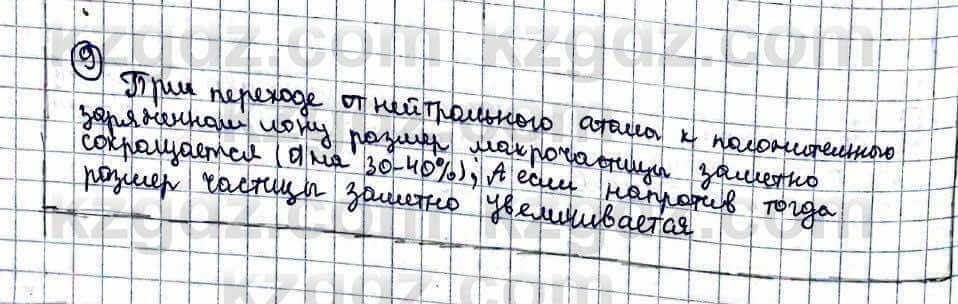 9
При переходе от нейтрального атома к положительно
заряженном иону размер макрочастицы заметно
сокращается (d на 30-40%); А если напротив тогда
размер частицы заметно увеличивается
kzgdz.com